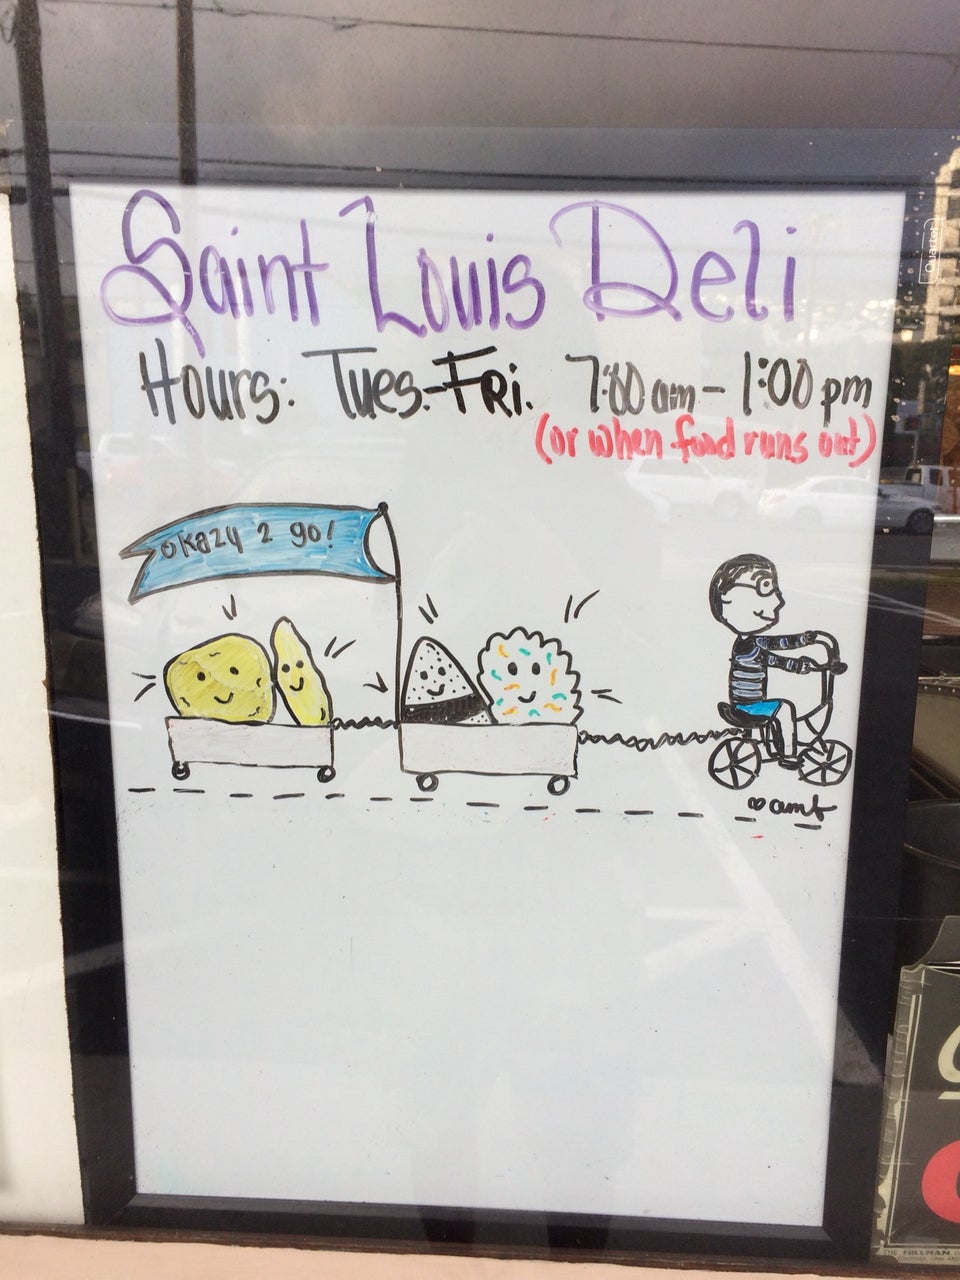 Saint Louis Deli
Hours: Tues.-Fri. 7:00 am - 1:00 pm
(or when food runs out)
okazy 2 go!
♡ amt
Quartet
THE HILLMAN